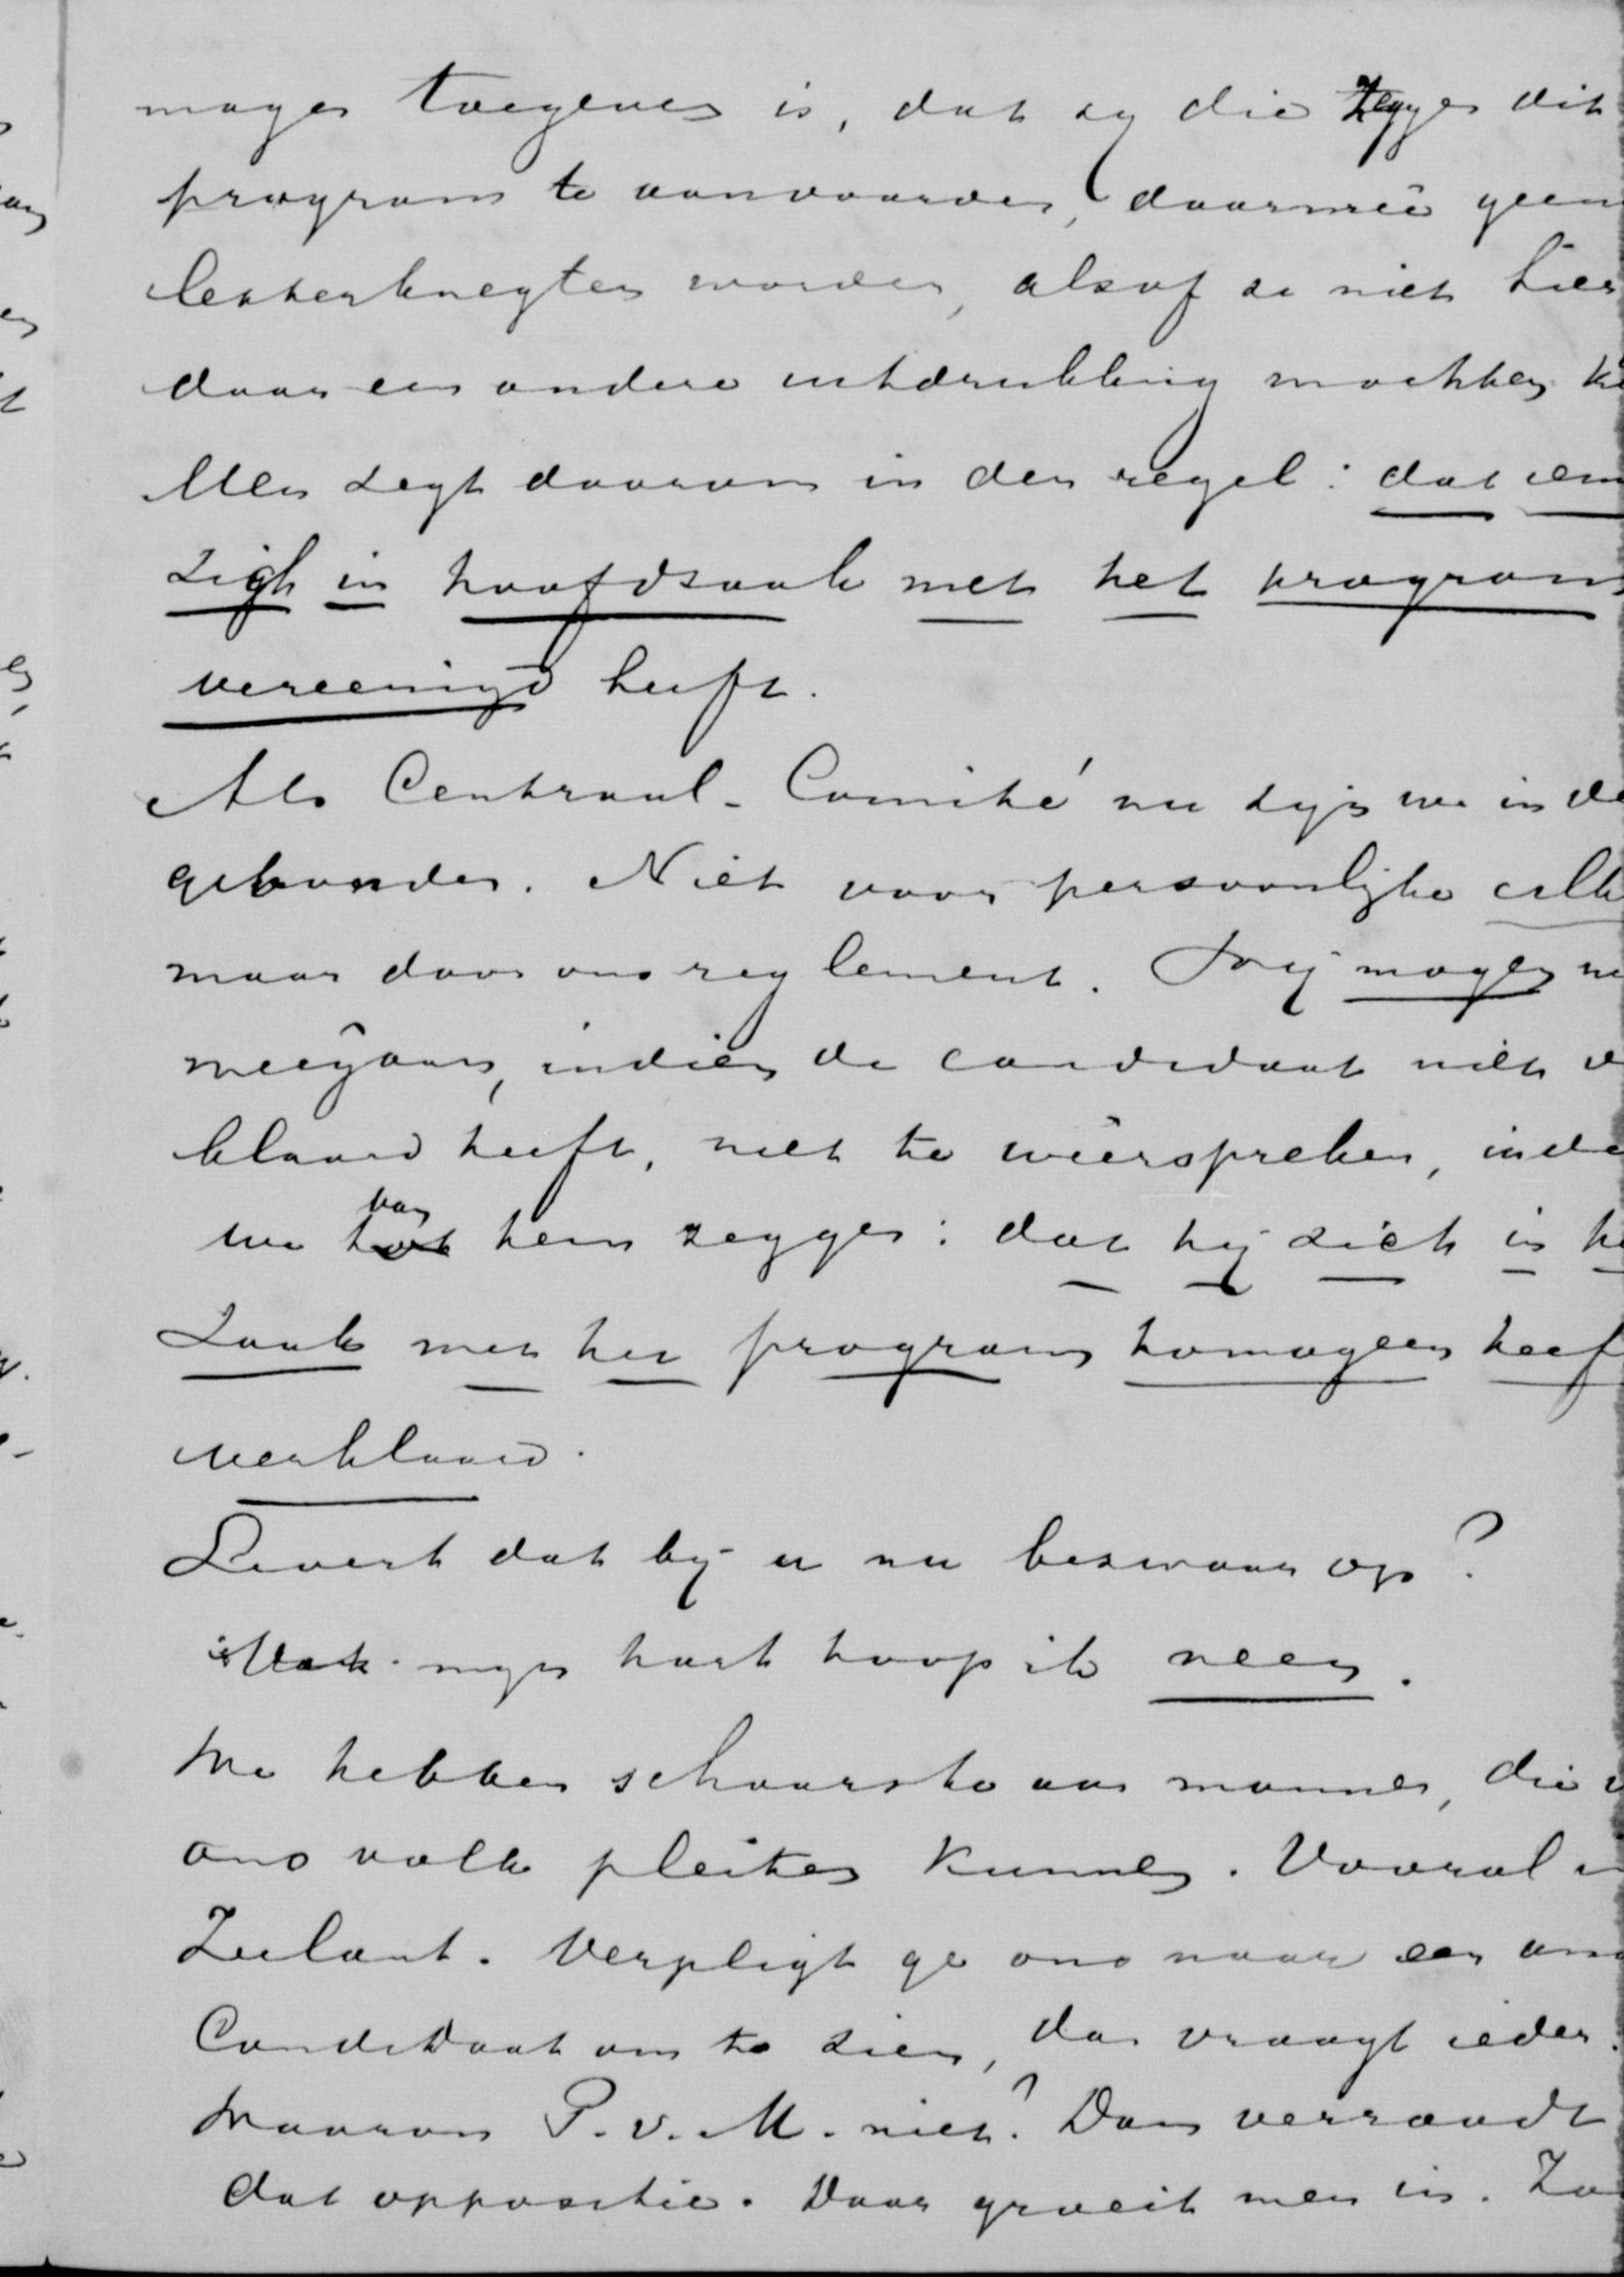 mogen toegeven is, dat zy die zeggen dit
program te aanvaarden, daarmeê geen
letterknegten worden, alsof ze niet hier
daar een andere uitdrukking mochten
Men zegt daarom in den regel: dat iem
zigh in hoofdzaak met het program
vereenigd heeft.
Als Centraal-Comité nu zijn we in de
gebonden. Niet voor persoonlijke
maar door ons reglement. Wij mogen
meêgaan, indien de candidaat niet
klaard heeft, niet te weêrspreken, inde
we van hem zeggen: dat hij zich in
zaak met het program homogeen heef
verklaard.
Levert dat bij u nu bezwaar op?
mijn hart hoop ik neen.
We hebben schaarste aan mannen, die
ons volk pleiten kunnen. Vooral
Zeelant. Verpligt ge ons naar een an
Candidaat om te zien, dan vraagt ieder.
Waarom P. v. M. niet? Dan verraadt
dat oppositie. Daar groeit men in. Zo